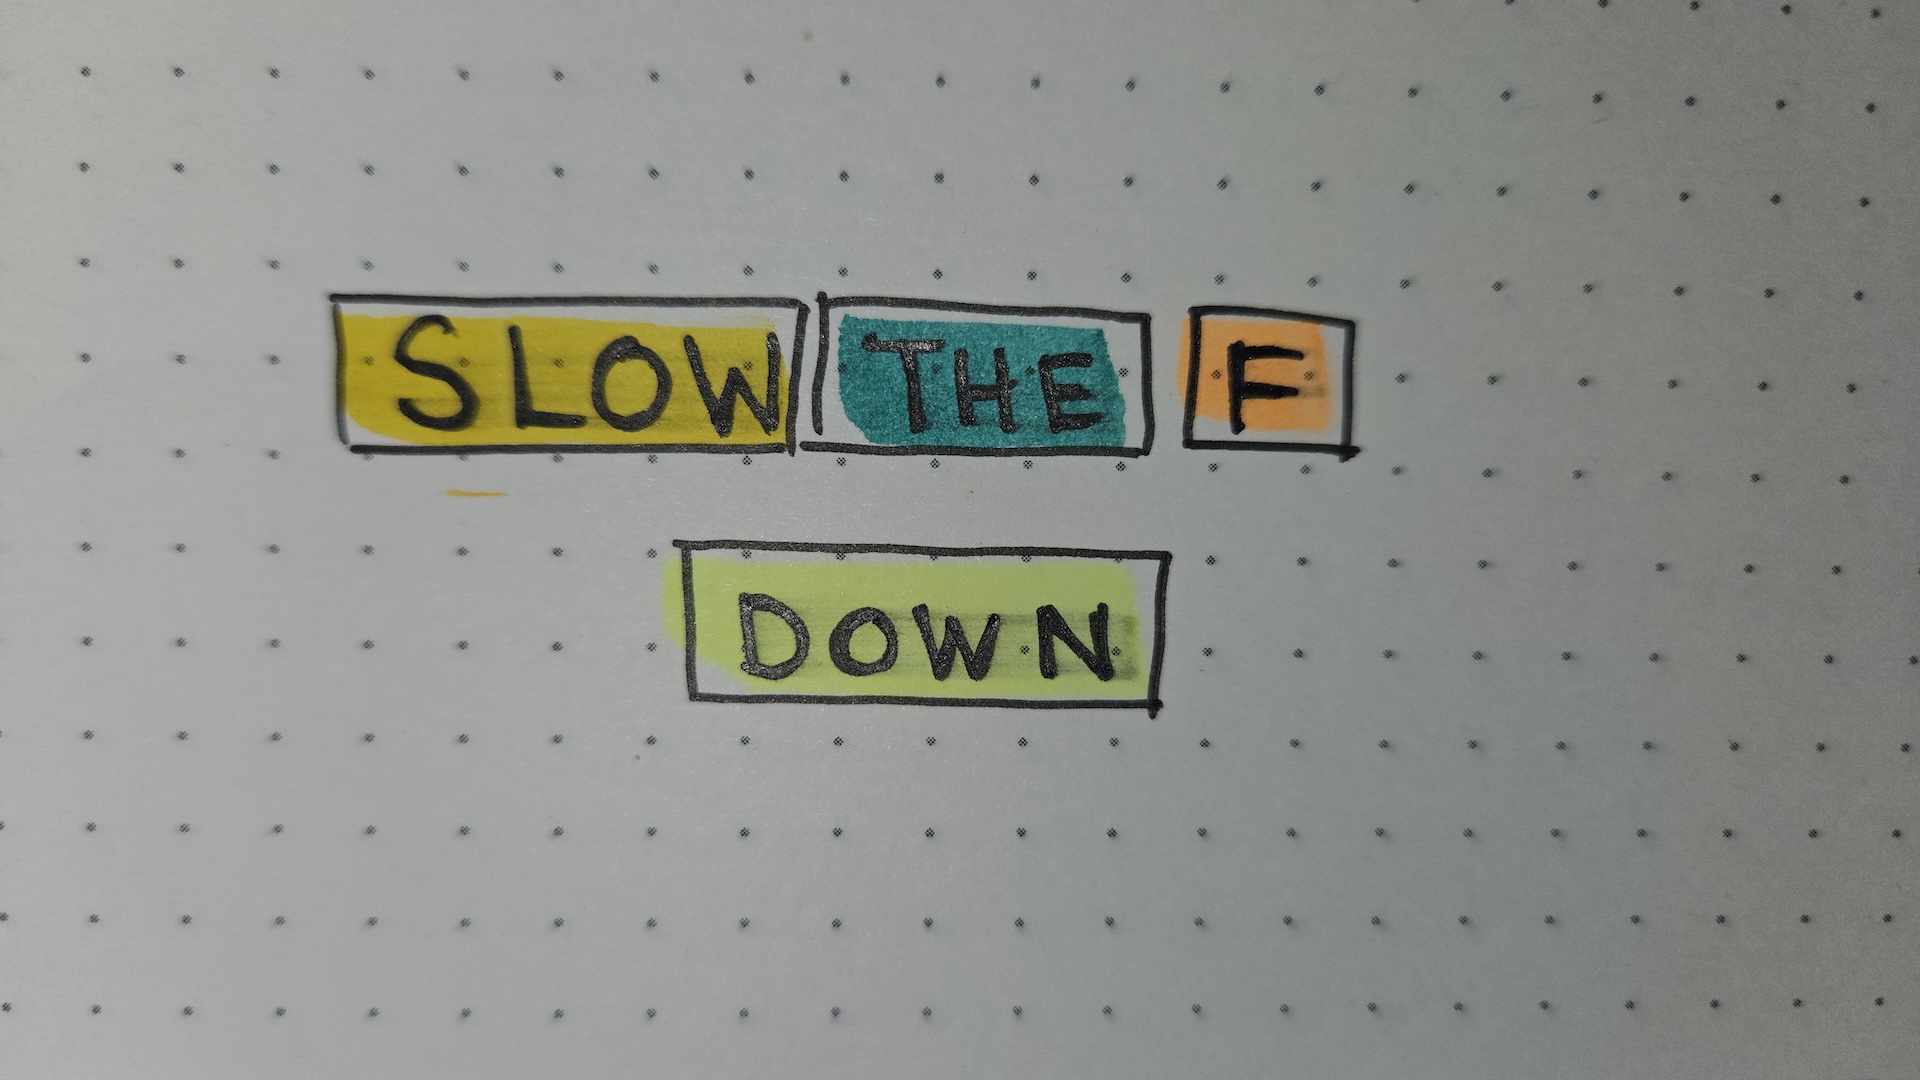 SLOW THE F
DOWN